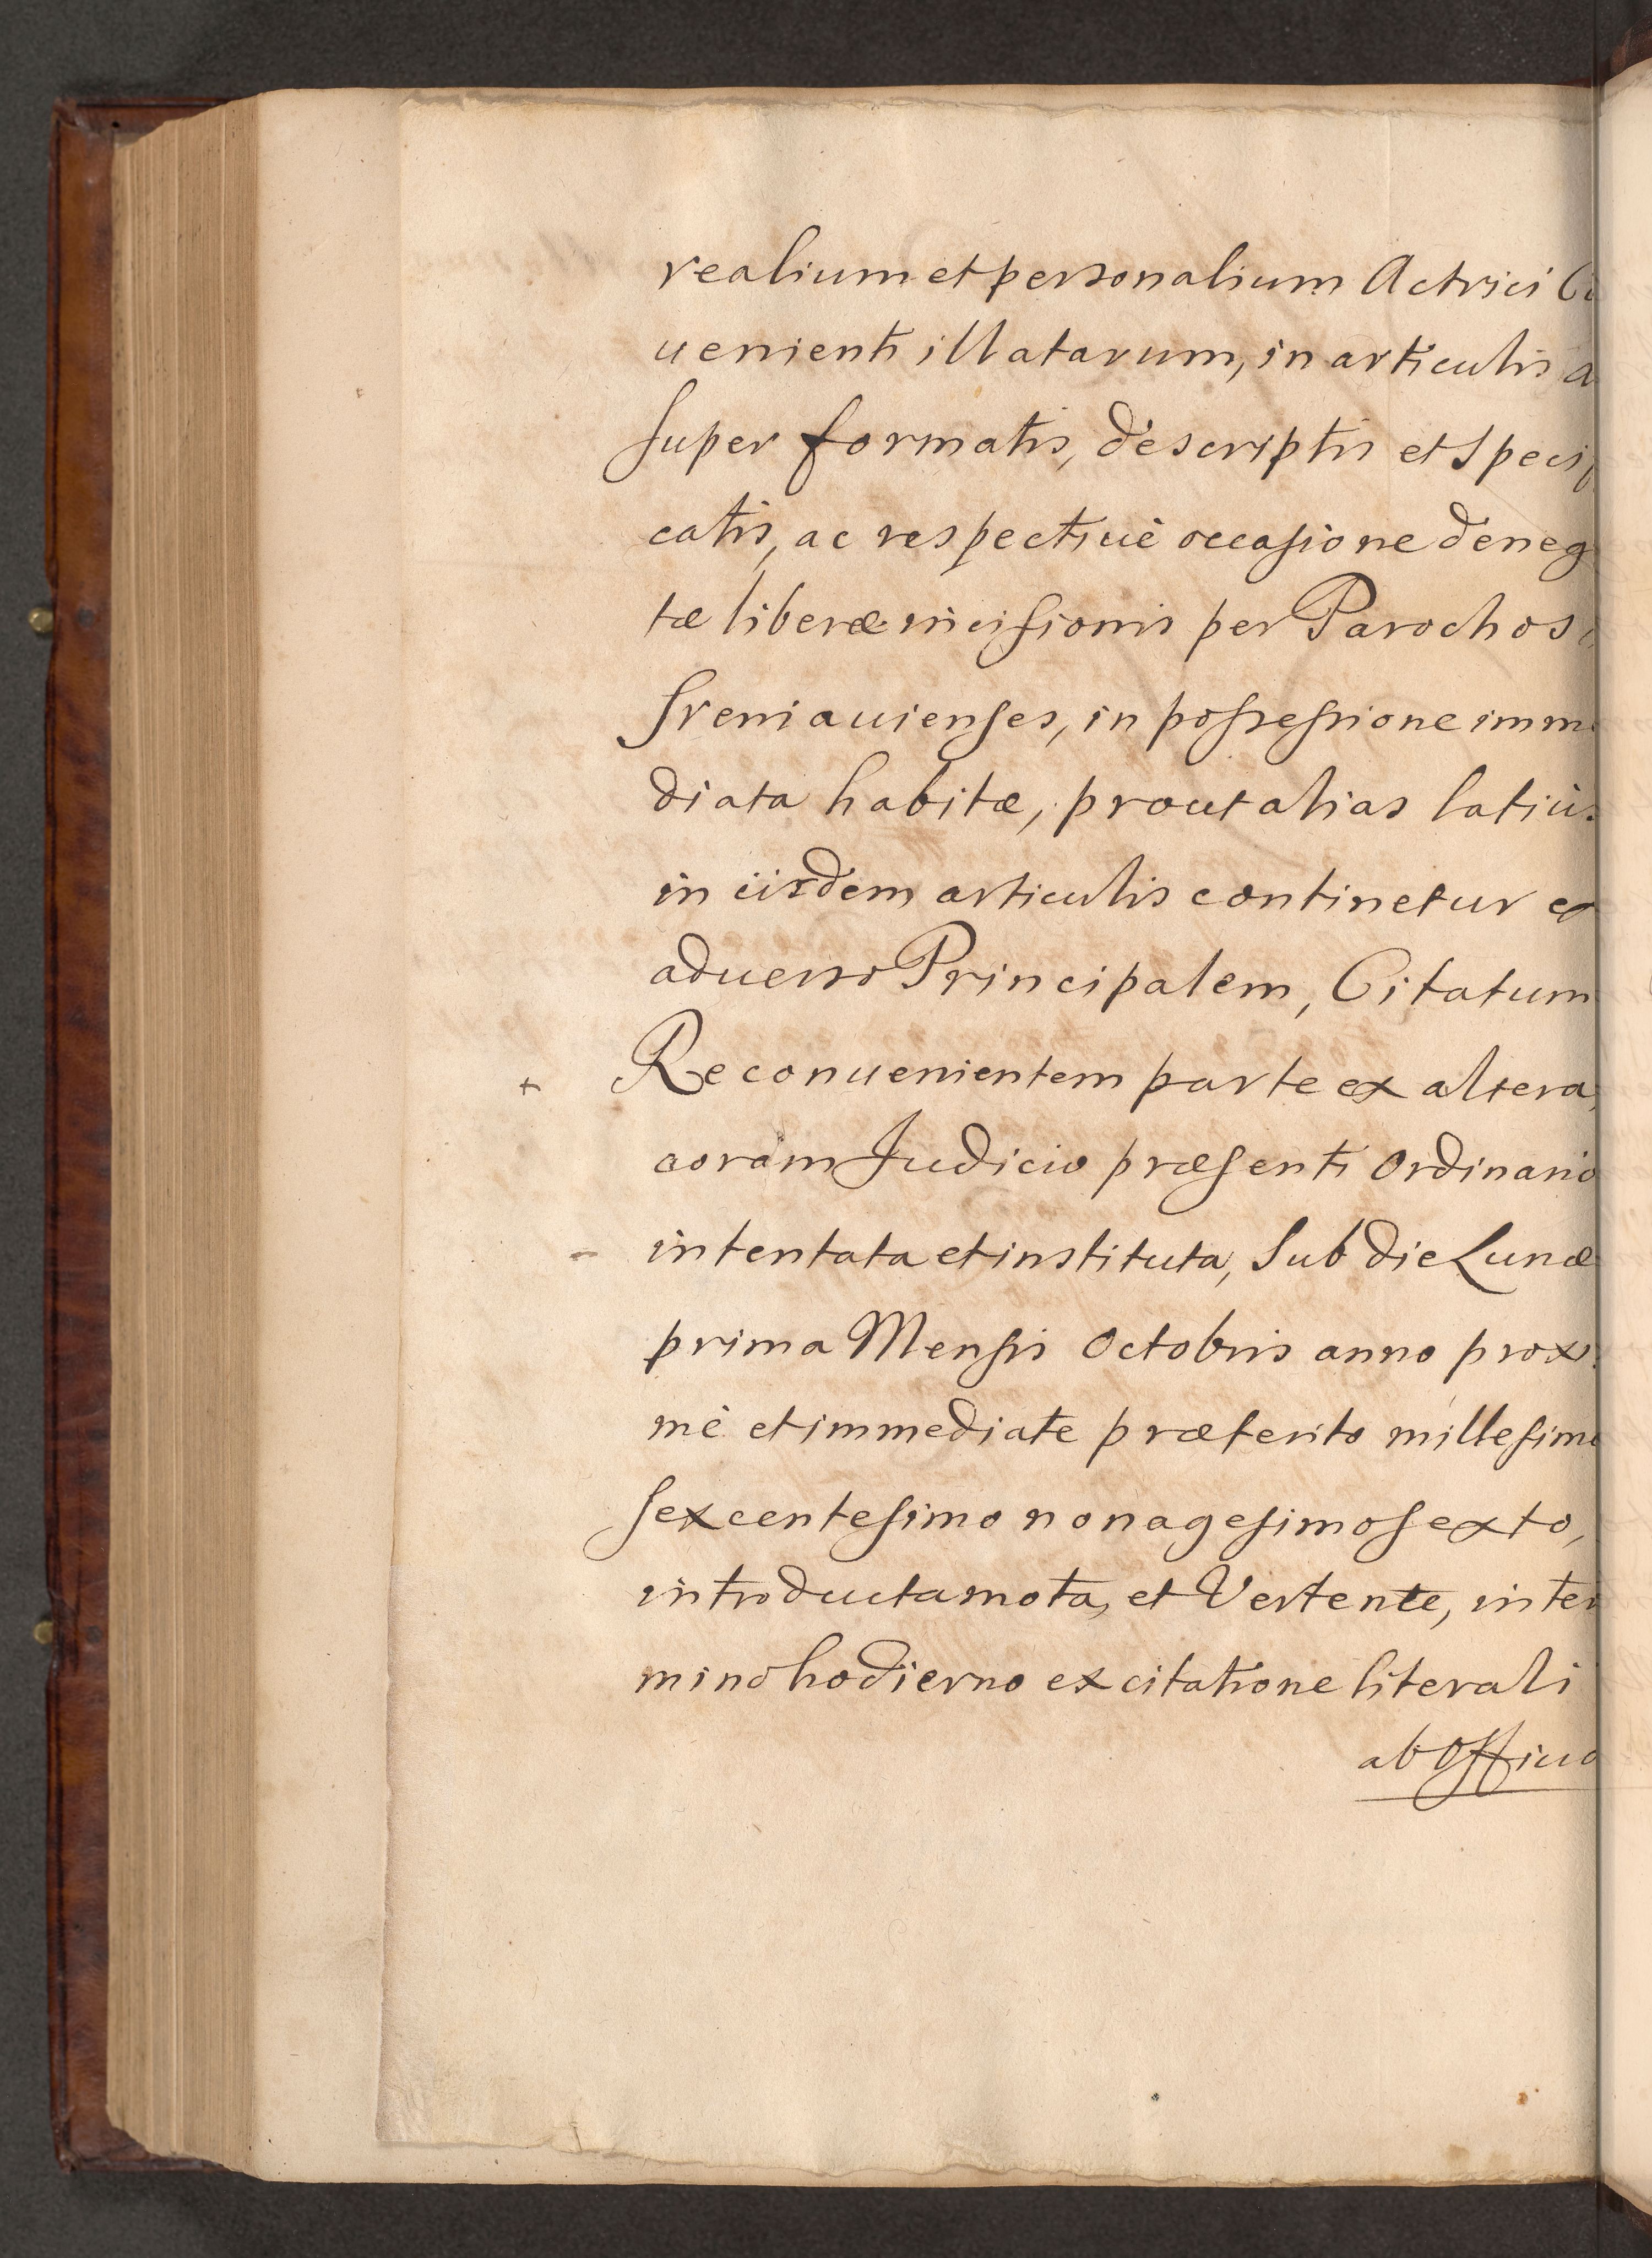 realium et personalium Actrici C
uenienti illatarum, in articulis a
super formatis, descriptis et speci
catis, ac respectiuè occasione deneg
tæ liberæ incisionis per Parochos
sreniauienses, in possessione imm
diata habitæ, prout alias latiùs
in iisdem articulis continetur ex
aduerso Principalem, Citatum
+ Reconuenientem parte ex altera,
coràm Judicio præsenti Ordinario
- intentata et instituta, sub die Lunæ
prima Mensis Octobris anno proxi
mè et immediate præterito millesimo
sexcentesimo nonagesimo sexto,
introducta mota, et Vertente, in ter
mino hodierno ex citatione literali
ab Officio